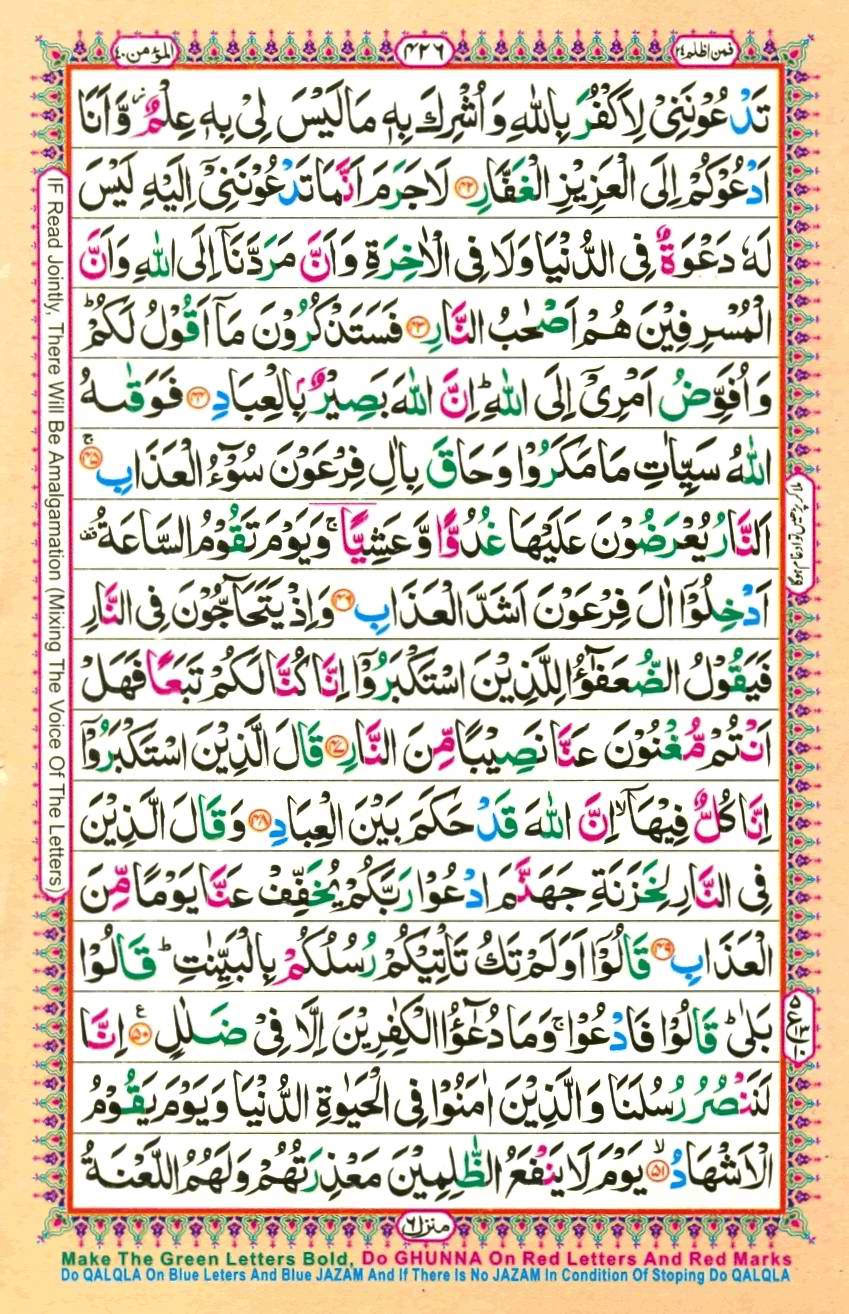 فمن اظلم ۲۴
۴۲۶
المؤمن ۴۰
تَدْعُوْنَنِیْ لِاَكْفُرَ بِاللّٰهِ وَاُشْرِكَ بِهٖ مَا لَیْسَ لِیْ بِهٖ عِلْمٌ ز وَّاَنَا
اَدْعُوْكُمْ اِلَی الْعَزِیْزِ الْغَفَّارِ ۴۲ لَاجَرَمَ اَنَّمَا تَدْعُوْنَنِیْۤ اِلَیْهِ لَیْسَ
لَهٗ دَعْوَةٌ فِی الدُّنْیَا وَلَا فِی الْاٰخِرَةِ وَاَنَّ مَرَدَّنَاۤ اِلَی اللّٰهِ وَاَنَّ
الْمُسْرِفِیْنَ هُمْ اَصْحٰبُ النَّارِ ۴۳ فَسَتَذْكُرُوْنَ مَاۤ اَقُوْلُ لَكُمْ ؕ
وَاُفَوِّضُ اَمْرِیْۤ اِلَی اللّٰهِ ؕ اِنَّ اللّٰهَ بَصِیْرٌۢ بِالْعِبَادِ ۴۴ فَوَقٰىهُ
اللّٰهُ سَیِّاٰتِ مَا مَكَرُوْا وَحَاقَ بِاٰلِ فِرْعَوْنَ سُوْٓءُ الْعَذَابِ ۚ ۴۵
اَلنَّارُ یُعْرَضُوْنَ عَلَیْهَا غُدُوًّا وَّ عَشِیًّا ۚ وَیَوْمَ تَقُوْمُ السَّاعَةُ قف
اَدْخِلُوْۤا اٰلَ فِرْعَوْنَ اَشَدَّ الْعَذَابِ ۴۶ وَاِذْ یَتَحَآجُّوْنَ فِی النَّارِ
فَیَقُوْلُ الضُّعَفٰٓؤُا لِلَّذِیْنَ اسْتَكْبَرُوْۤا اِنَّا كُنَّا لَكُمْ تَبَعًا فَهَلْ
اَنْتُمْ مُّغْنُوْنَ عَنَّا نَصِیْبًا مِّنَ النَّارِ ۴۷ قَالَ الَّذِیْنَ اسْتَكْبَرُوْۤا
اِنَّا كُلٌّ فِیْهَاۤ ۙ اِنَّ اللّٰهَ قَدْ حَكَمَ بَیْنَ الْعِبَادِ ۴۸ وَقَالَ الَّذِیْنَ
فِی النَّارِ لِخَزَنَةِ جَهَنَّمَ ادْعُوْا رَبَّكُمْ یُخَفِّفْ عَنَّا یَوْمًا مِّنَ
الْعَذَابِ ۴۹ قَالُوْۤا اَوَلَمْ تَكُ تَاْتِیْكُمْ رُسُلُكُمْ بِالْبَیِّنٰتِ ؕ قَالُوْا
بَلٰی ؕ قَالُوْا فَادْعُوْا ۚ وَمَا دُعٰٓؤُا الْكٰفِرِیْنَ اِلَّا فِیْ ضَلٰلٍ ع ۵۰ اِنَّا
لَنَنْصُرُ رُسُلَنَا وَالَّذِیْنَ اٰمَنُوْا فِی الْحَیٰوةِ الدُّنْیَا وَیَوْمَ یَقُوْمُ
الْاَشْهَادُ ۙ ۵۱ یَوْمَ لَا یَنْفَعُ الظّٰلِمِیْنَ مَعْذِرَتُهُمْ وَلَهُمُ اللَّعْنَةُ
منزل ۶
IF Read Jointly, There Will Be Amalgamation (Mixing The Voice Of The Letters)
Make The Green Letters Bold, Do GHUNNA On Red Letters And Red Marks
Do QALQLA On Blue Leters And Blue JAZAM And If There Is No JAZAM In Condition Of Stoping Do QALQLA